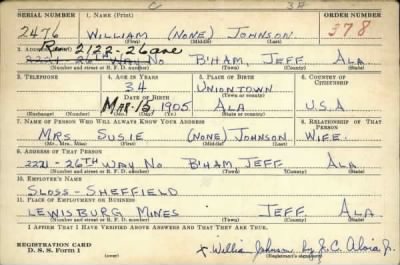 C 3A
SERIAL NUMBER 1. NAME (Print) ORDER NUMBER
2476 WILLIAM (NONE) JOHNSON 378
(First) (Middle) (Last)
Res 2122-26 ave
2. ADDRESS (Print)
2221 - 26TH WAY NO B'HAM, JEFF. ALA.
(Number and street or R. F. D. number) (Town) (County) (State)
3. TELEPHONE 4. AGE IN YEARS 5. PLACE OF BIRTH 6. COUNTRY OF CITIZENSHIP
34 UNIONTOWN
DATE OF BIRTH (Town or county)
MAR. 15, 1905 ALA U.S.A
(Exchange) (Number) (Mo.) (Day) (Yr.) (State or country)
7. NAME OF PERSON WHO WILL ALWAYS KNOW YOUR ADDRESS 8. RELATIONSHIP OF THAT PERSON
MRS. SUSIE (NONE) JOHNSON WIFE.
(Mr., Mrs., Miss) (First) (Middle) (Last)
9. ADDRESS OF THAT PERSON
2221 - 26TH WAY NO B'HAM, JEFF ALA.
(Number and street or R. F. D. number) (Town) (County) (State)
10. EMPLOYER'S NAME
SLOSS-SHEFFIELD
11. PLACE OF EMPLOYMENT OR BUSINESS
LEWISBURG MINES JEFF. ALA.
(Number and street or R. F. D. number) (Town) (County) (State)
I AFFIRM THAT I HAVE VERIFIED ABOVE ANSWERS AND THAT THEY ARE TRUE.
REGISTRATION CARD
D. S. S. Form 1 (over) x William Johnson by J. C. Jr.
(Registrant's signature)